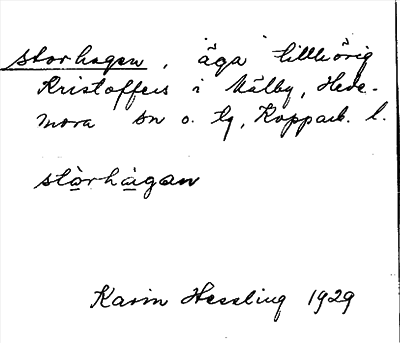 storhagen, äga tillhörig
Kristoffers i Mälby, Hede-
mora sn o. tg, Kopparb. l.
stòrhàgan
Karin Hessling 1929